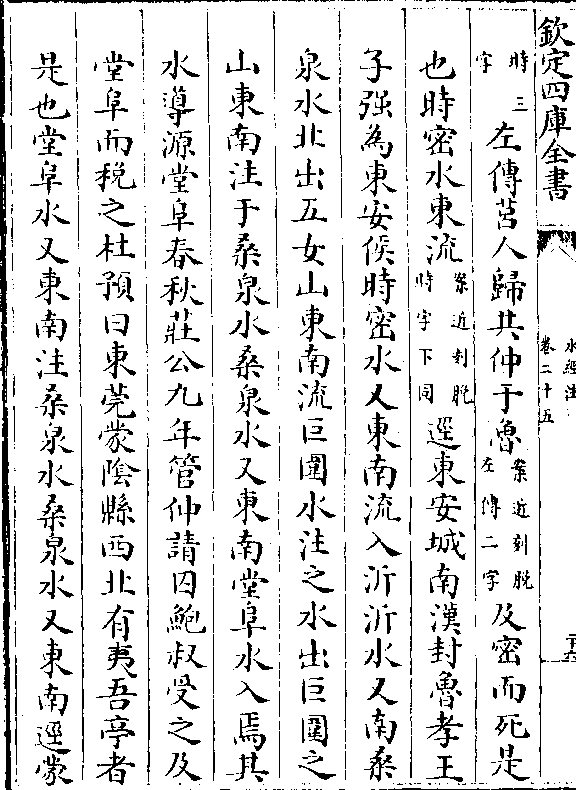 欽定四庫全書
水經注
卷二十五
時三字左傳莒人歸共仲于魯案近刻脫左傳二字及密而死是
也時密水東流案近刻脫時字下同逕東安城南漢封魯孝王
子强為東安侯時密水又東南流入沂沂水又南桑
泉水北出五女山東南流巨圍水注之水出巨圍之
山東南注于桑泉水桑泉水又東南堂阜水入焉其
水導源堂阜春秋莊公九年管仲請囚鮑叔受之及
堂阜而稅之杜預曰東莞蒙陰縣西北有夷吾亭者
是也堂阜水又東南注桑泉水桑泉水又東南逕蒙